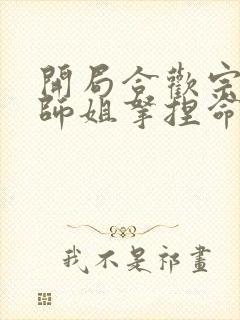 開局合歡宗
師姐拏捏命
我不是祁畫